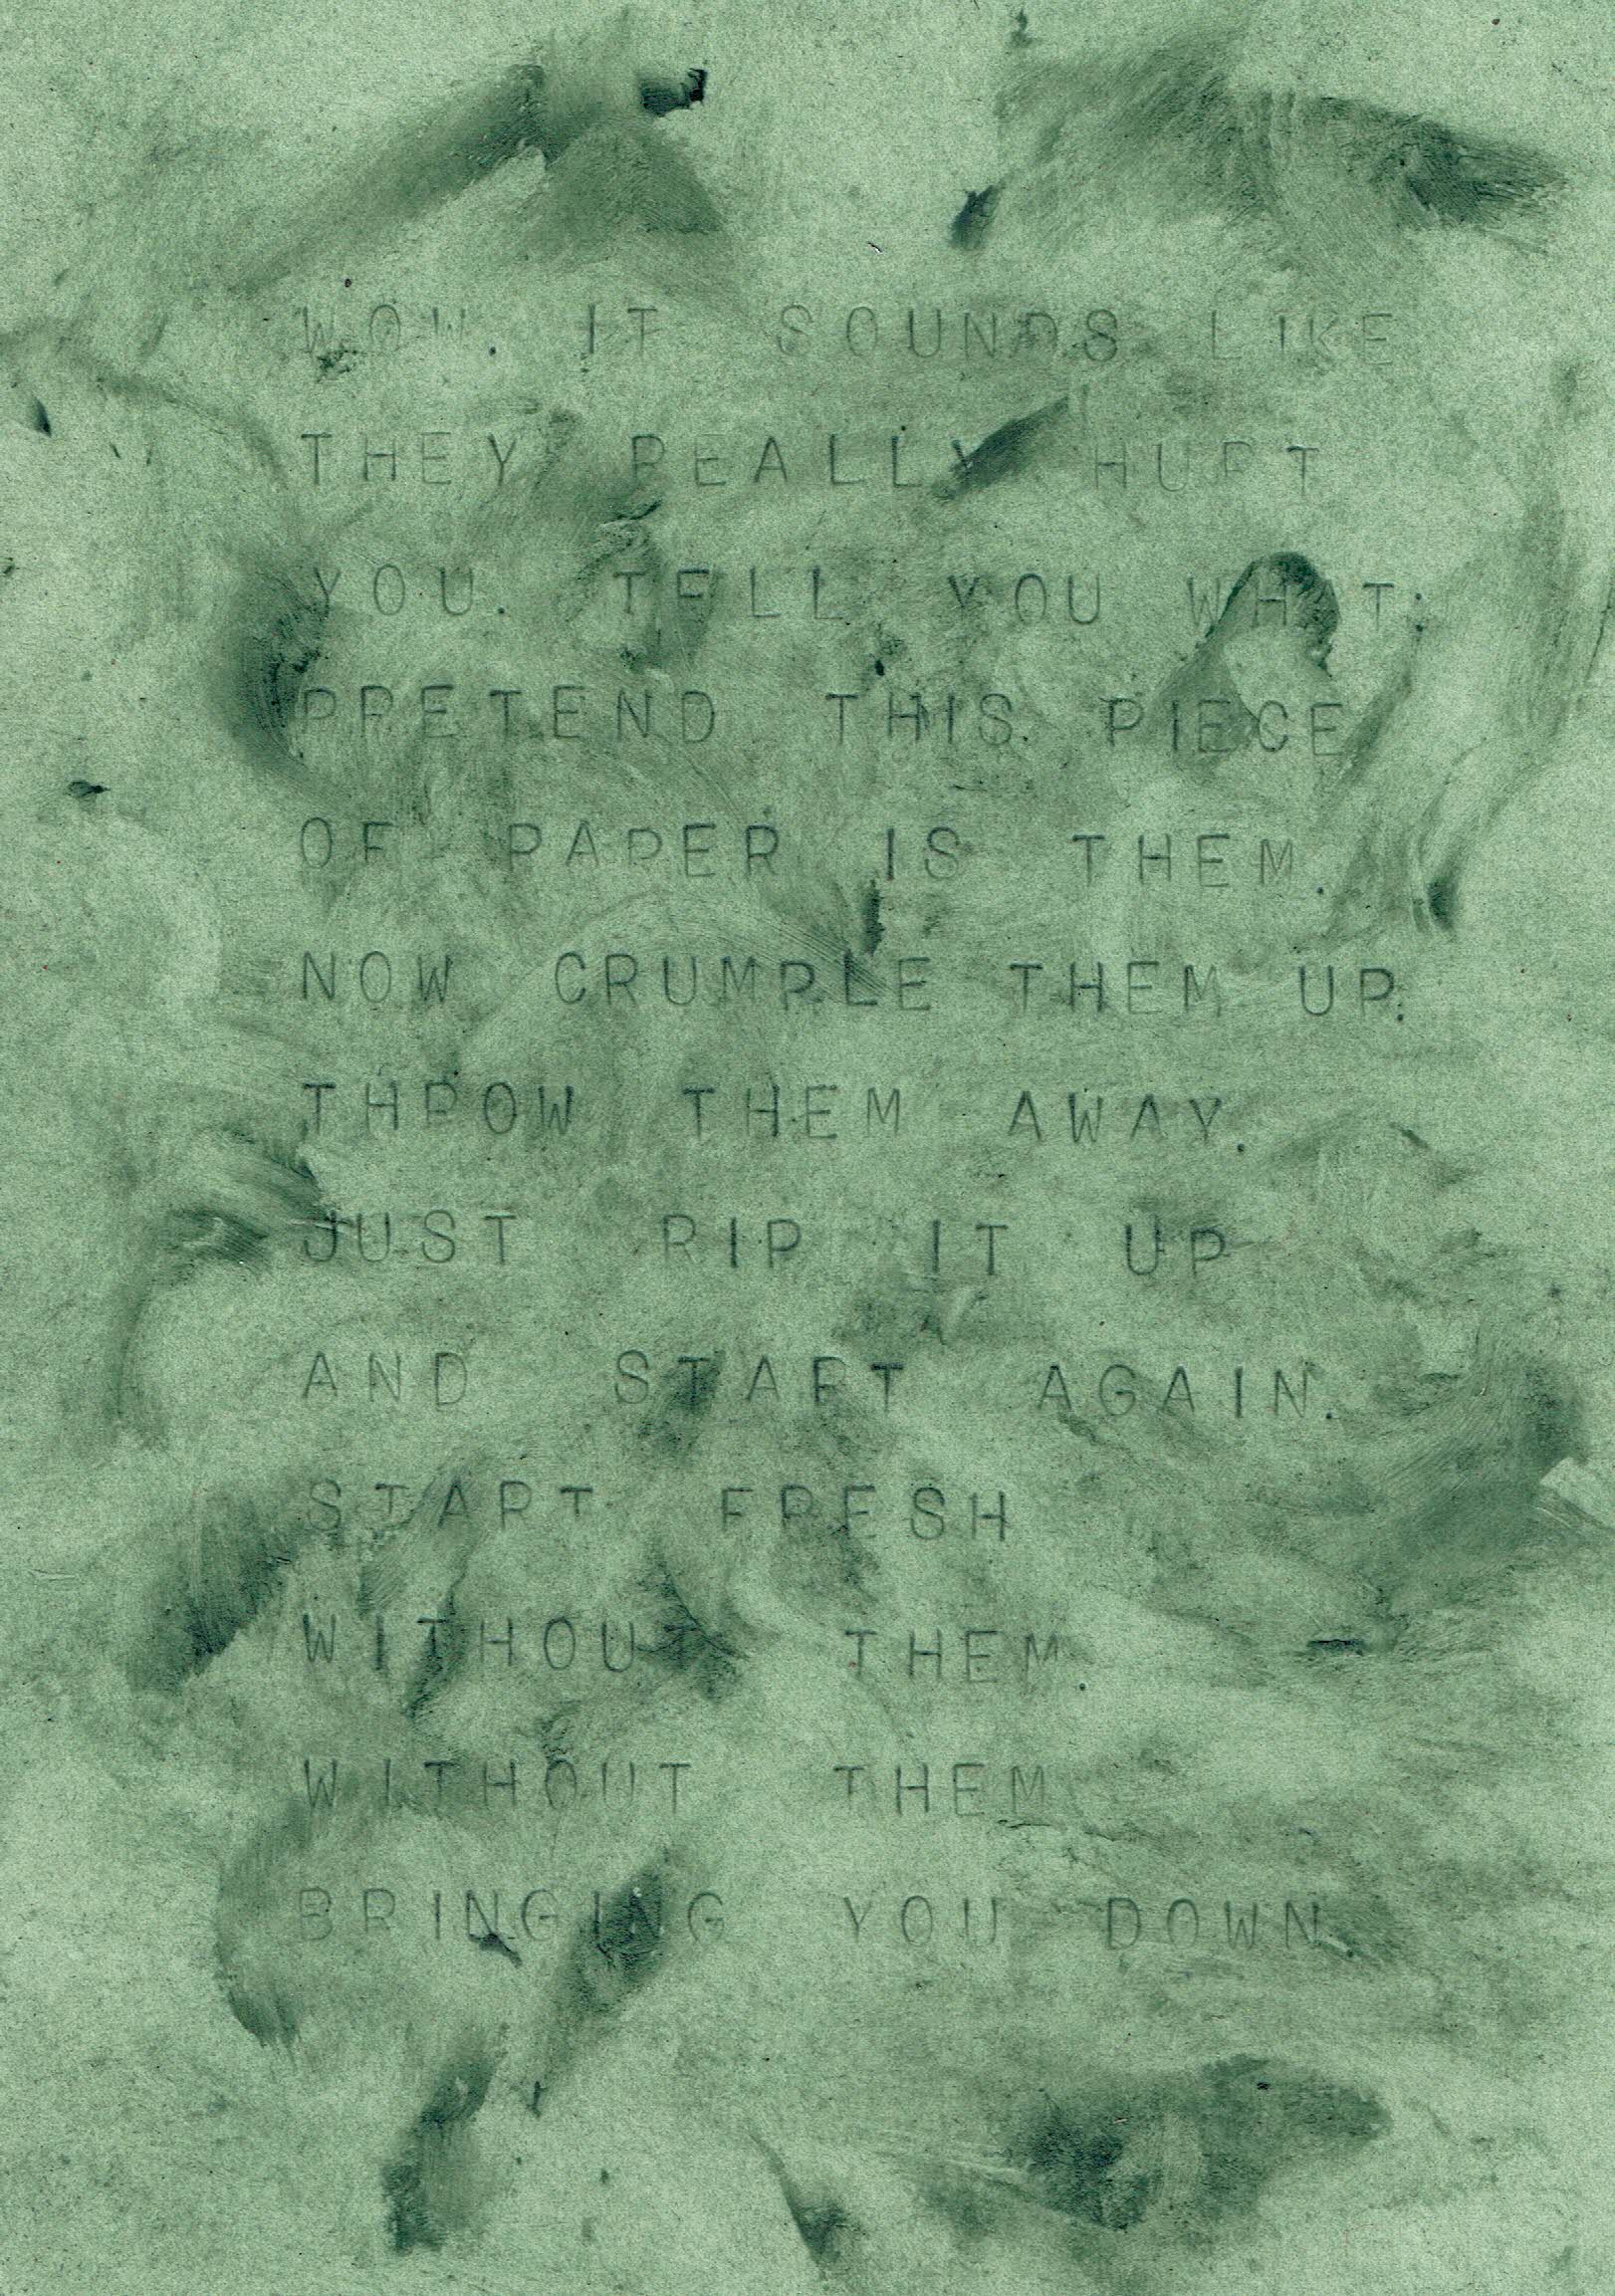 WOW. IT SOUNDS LIKE
THEY REALLY HURT
YOU. TELL YOU WHAT:
PRETEND THIS PIECE
OF PAPER IS THEM.
NOW CRUMPLE THEM UP.
THROW THEM AWAY.
JUST RIP IT UP
AND START AGAIN.
START FRESH
WITHOUT THEM.
WITHOUT THEM
BRINGING YOU DOWN.